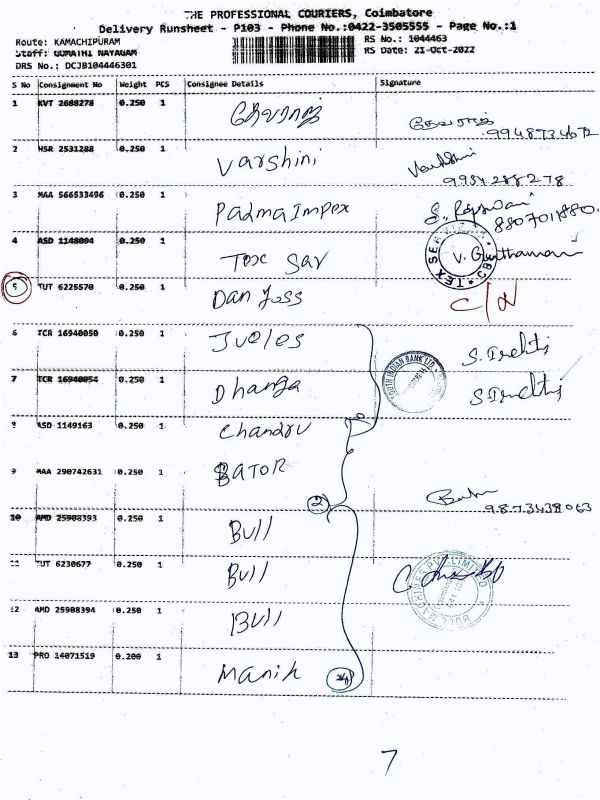 THE PROFESSIONAL COURIERS, Coimbatore
Delivery Runsheet - P103 - Phone No.:0422-3505555 - Page No.:1
Route: KAMACHIPURAM
RS No.: 1044463
Staff: GOMATHI NAYAGAM
RS Date: 21-Oct-2022
DRS No.: DCJB104446301
S No Consignment No Weight PCS Consignee Details Signature
1 KVT 2688278 0.250 1 தேவராஜ் தேவராஜ்
2 HSR 2531288 0.250 1 Varshini Varshini
3 MAA 566533496 0.250 1 Padma Impex
8807011880.
4 ASD 1148094 0.250 1 Tex Sar
TEX SERVIZ CBE
5 TUT 6225570 0.250 1 C/N
6 TCR 16940050 0.250 1
SOUTH INDIAN BANK LTD.
7 TCR 16940054 0.250 1
8 ASD 1149163 0.250 1 Chandru
9 MAA 290742631 0.250 1 BATOR
2
9873438063
10 AMD 25908393 0.250 1 Bull
11 TUT 6230677 0.250 1 Bull
BULL MACHINES PVT LIMITED
12 AMD 25908394 0.250 1 Bull
13 PRO 14071519 0.200 1 Manik
7